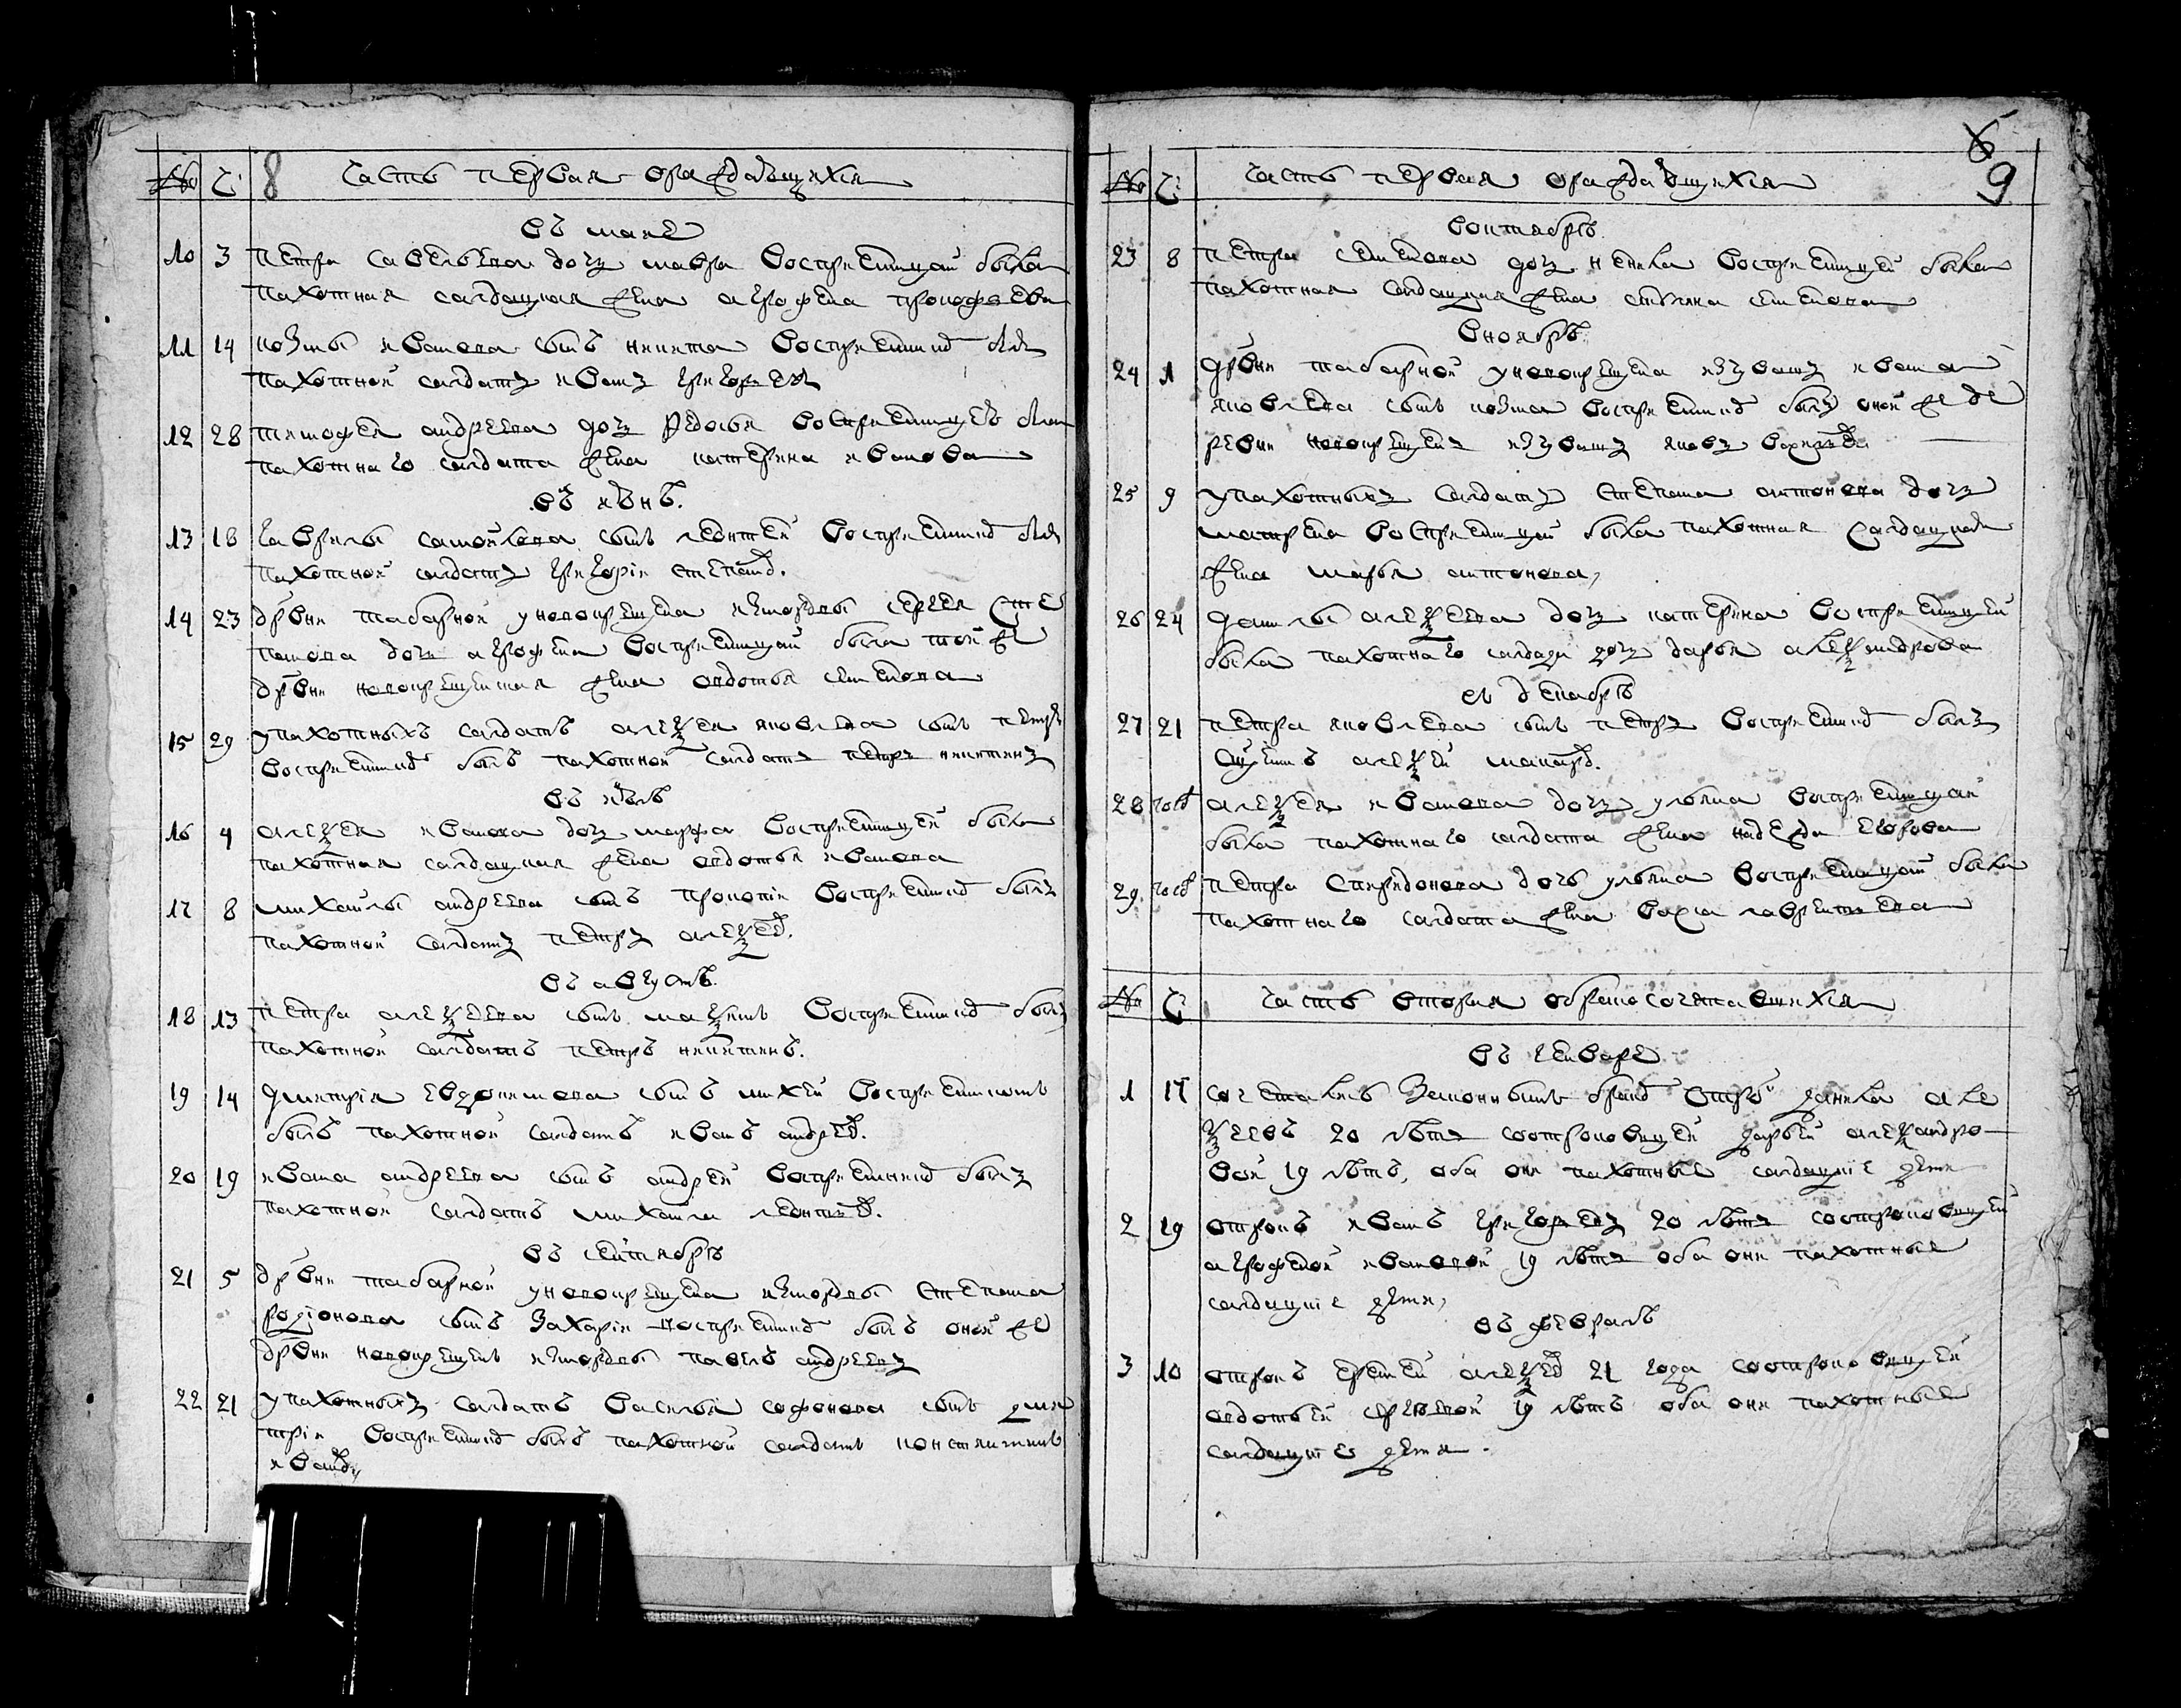 № Ч: 8 Часть первая ораждающихся
въ маие
10 3 петра савельева дочь мавра восприемницей была
пахотная салдацкая жена агрофена прокофева
11 14 козмы иванова сынъ никита восприемник был
пахотной салдатъ иванъ григорев
12 28 тимофея андреева дочь федосья восприемницею была
пахотнаго салдата жена катерина иванова
въ июнѣ.
13 18 гаврилы самойлова сынъ леонтей восприемник был
пахотной салдатъ григорiи степанов.
14 23 дрвни табарной у новокрещена измордвы сергея сте
панова дочь агрофена восприемницей была той же
дрвни новокрещенная жена овдотья семенова
15 29 упахотныхъ салдатъ алексея яковлева сынъ петръ
восприемник былъ пахотной салдатъ петръ никитинъ
въ июлѣ
16 4 алексея иванова дочь марфа восприемницей была
пахотная салдацкая жена овдотья иванова
17 8 михаилы андреева сынъ прокопiи восприемник былъ
пахотной салдатъ петръ алексеев.
въ августѣ.
18 13 петра алексеева сынъ максимъ восприемник былъ
пахотной салдатъ петръ никитинъ.
19 14 дмитрiя евдокимова сынъ михей восприемникомъ
былъ пахотной салдатъ иванъ андреев.
20 19 ивана андреева сынъ андрей восприемник былъ
пахотной салдатъ михаила леонтьев.
въ сентябрѣ
21 5 дрвни табарной уновокрещена измордвы степана
родiонова сынъ захарiи восприемник былъ оной же
дрвни новокрещенъ измордвы павелъ андреевъ
22 21 упахотныхъ салдатъ василья софонова сынъ дми
трiи восприемник былъ пахотной салдатъ константинъ
иванов
6
№ Ч: часть первая ораждающихся 9
воктябрѣ.
23 8 петра семенова дочь восприемницей была
пахотная салдацкая жена семенова
вноябрѣ.
24 1 дрвни табарной уновокрещена изчувашъ ивана
яковлева сынъ козма восприемник былъ оной же де
ревни новокрещенъ изчувашъ яковъ
25 9 упахотныхъ салдатъ степана антонова дочь
матрена восприемницей была пахотная салдацкая
жена марья антонова,
26 24 данилы алексеева дочь катерина восприемницей
была пахотнаго салдата дочь дарья александрова
въ декабрѣ
27 21 петра яковлева сынъ петръ восприемник былъ
алексей макаров.
28 тогож алексея иванова дочь ульяна восприемницей
была пахотнаго салдата жена надежда егорова
29. тогож петра спиридонова дочь ульяна восприемницей была
пахотнаго салдата жена лаврентьева
№ Ч: часть вторая обракосочетавшихся
въ генваре
1 17 сочетались законнымъ браком отрокъ данила але
ксеевъ 20 лѣтъ соотроковицей дарьей александро–
вой 19 лѣтъ, оба они пахотные салдацкiе дети
2 19 отрокъ иванъ григорьевъ 20 лѣтъ соотроковицей
агрофеной ивановой 19 лѣтъ оба они пахотные
салдацкiе дети,
въ февралѣ
3 10 отрокъ еремей алексеев 21 года соотроковицей
овдотьей сергеевой 19 лѣтъ оба они пахотные
салдацкiе дети.